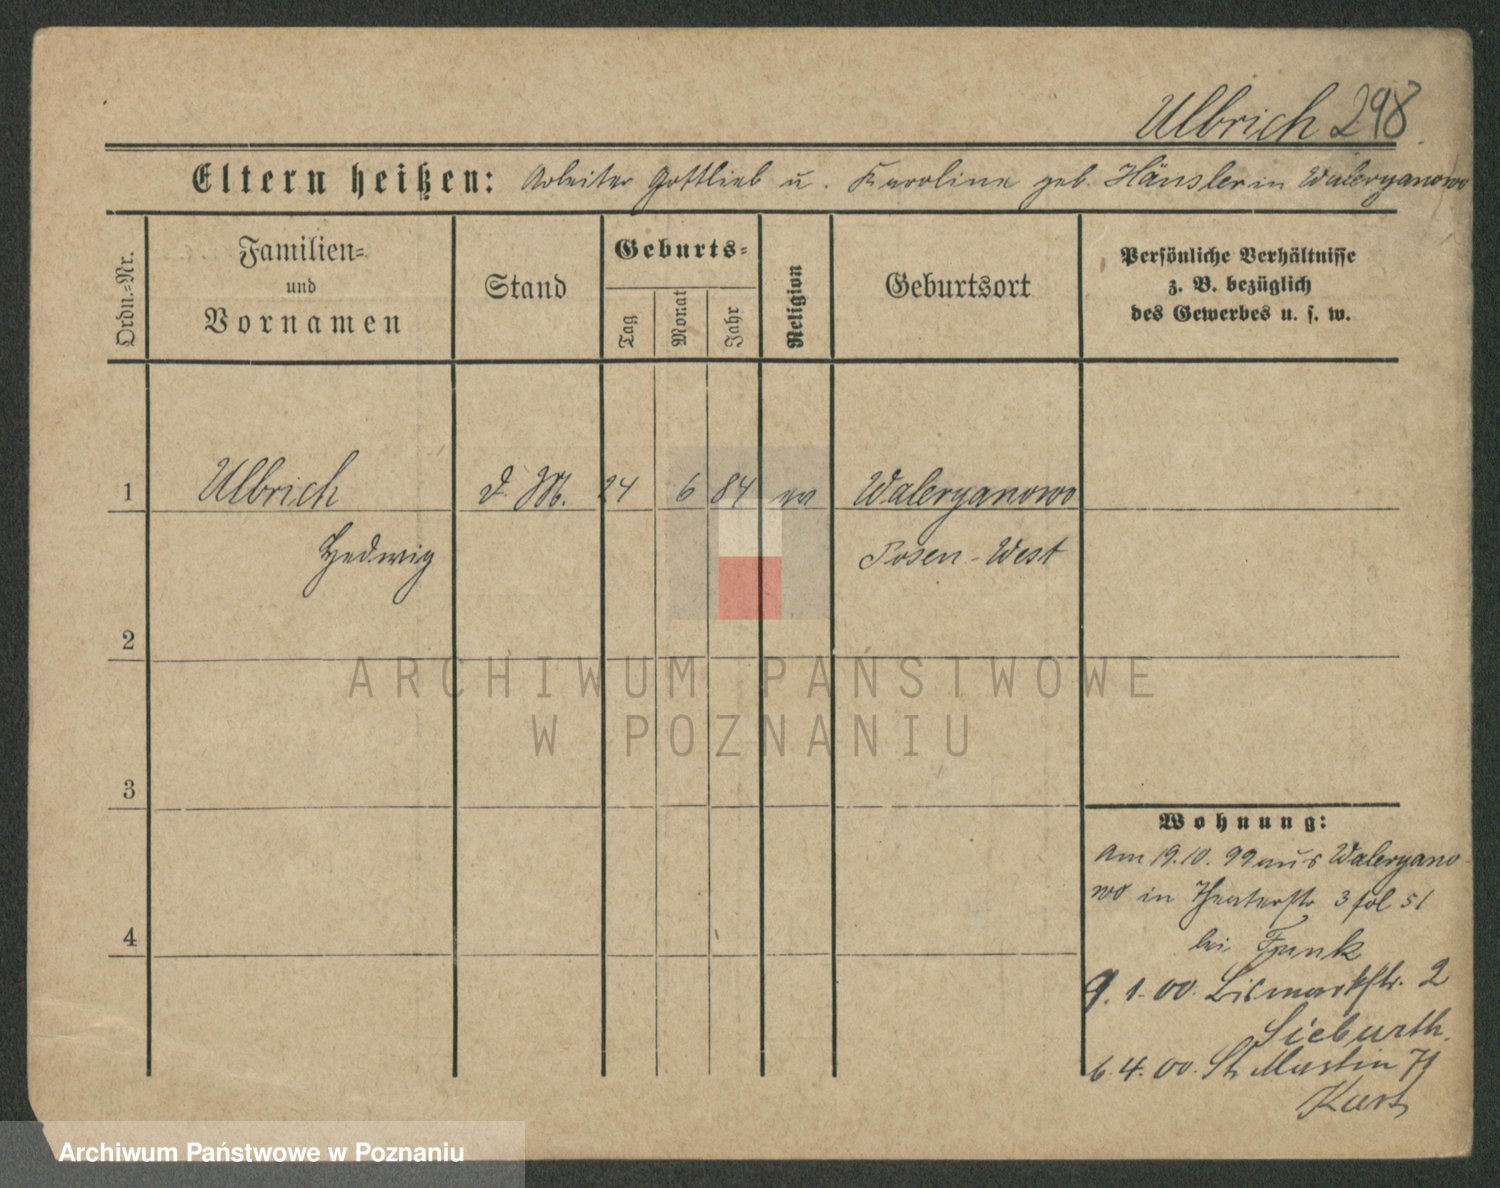 Ulbrich 298
Eltern heißen: Arbeiter Gottlieb u. Karoline geb. Hänsler in Waleryanowo
Ordn.-Nr.
Familien-
und
Vornamen
Stand
Geburts-
Tag
Monat
Jahr
Religion
Geburtsort
Persönliche Verhältnisse
z. B. bezüglich
des Gewerbes u. s. w.
1 Ulbrich d. M. 24 6 84 ev Waleryanowo
Hedwig Posen-West
2
3
4
Wohnung:
Am 19.10.99 aus Waleryano-
wo in Theaterstr 3 fol 51
bei Funk
9.1.00. Bismarkstr. 2
Sieburth.
6.4.00. St. Martin 71
ARCHIWUM PAŃSTWOWE
W POZNANIU
Archiwum Państwowe w Poznaniu